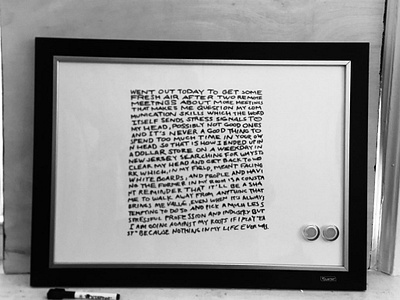 WENT OUT TODAY TO GET SOME
FRESH AIR AFTER TWO REMOTE
MEETINGS ABOUT MORE MEETINGS
THAT MAKES ME QUESTION MY COM
MUNICATION SKILLS WHICH THE WORD
ITSELF SENDS STRESS SIGNALS TO
MY HEAD, POSSIBLY NOT GOOD ONES
AND IT'S NEVER A GOOD THING TO
SPEND TOO MUCH TIME IN YOUR OW
N HEAD. SO THAT IS HOW I ENDED UP IN
A DOLLAR STORE ON A WEEKDAY IN
NEW JERSEY SEARCHING FOR WAYS TO
CLEAR MY HEAD AND GET BACK TO WO
RK WHICH, IN MY FIELD, MEANT FACING
WHITE BOARDS, AND PEOPLE AND HAVI
NG THE FORMER IN MY ROOM IS A CONSTA
NT REMINDER THAT IT'LL BE A SHA
ME TO WALK AWAY FROM ANYTHING THAT
BRINGS ME VALUE, EVEN WHEN IT'S ALWAYS
TEMPTING TO DO SO AND PICK A MUCH LESS
STRESSFUL PROFESSION AND INDUSTRY BUT
I AM GOING AGAINST MY ROOTS IF I PLAY "EA
SY" BECAUSE NOTHING IN MY LIFE EVER WAS